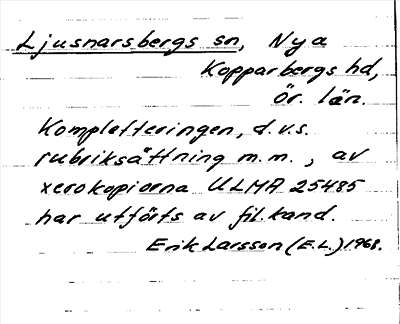 Ljusnarsbergs sn, Nya
Kopparbergs hd,
Ör. län.
Kompletteringen, d.v.s.
rubriksättning m.m., av
xerokopiorna ULMA 25485
har utförts av fil.kand.
Erik Larsson (E.L.) 1968.